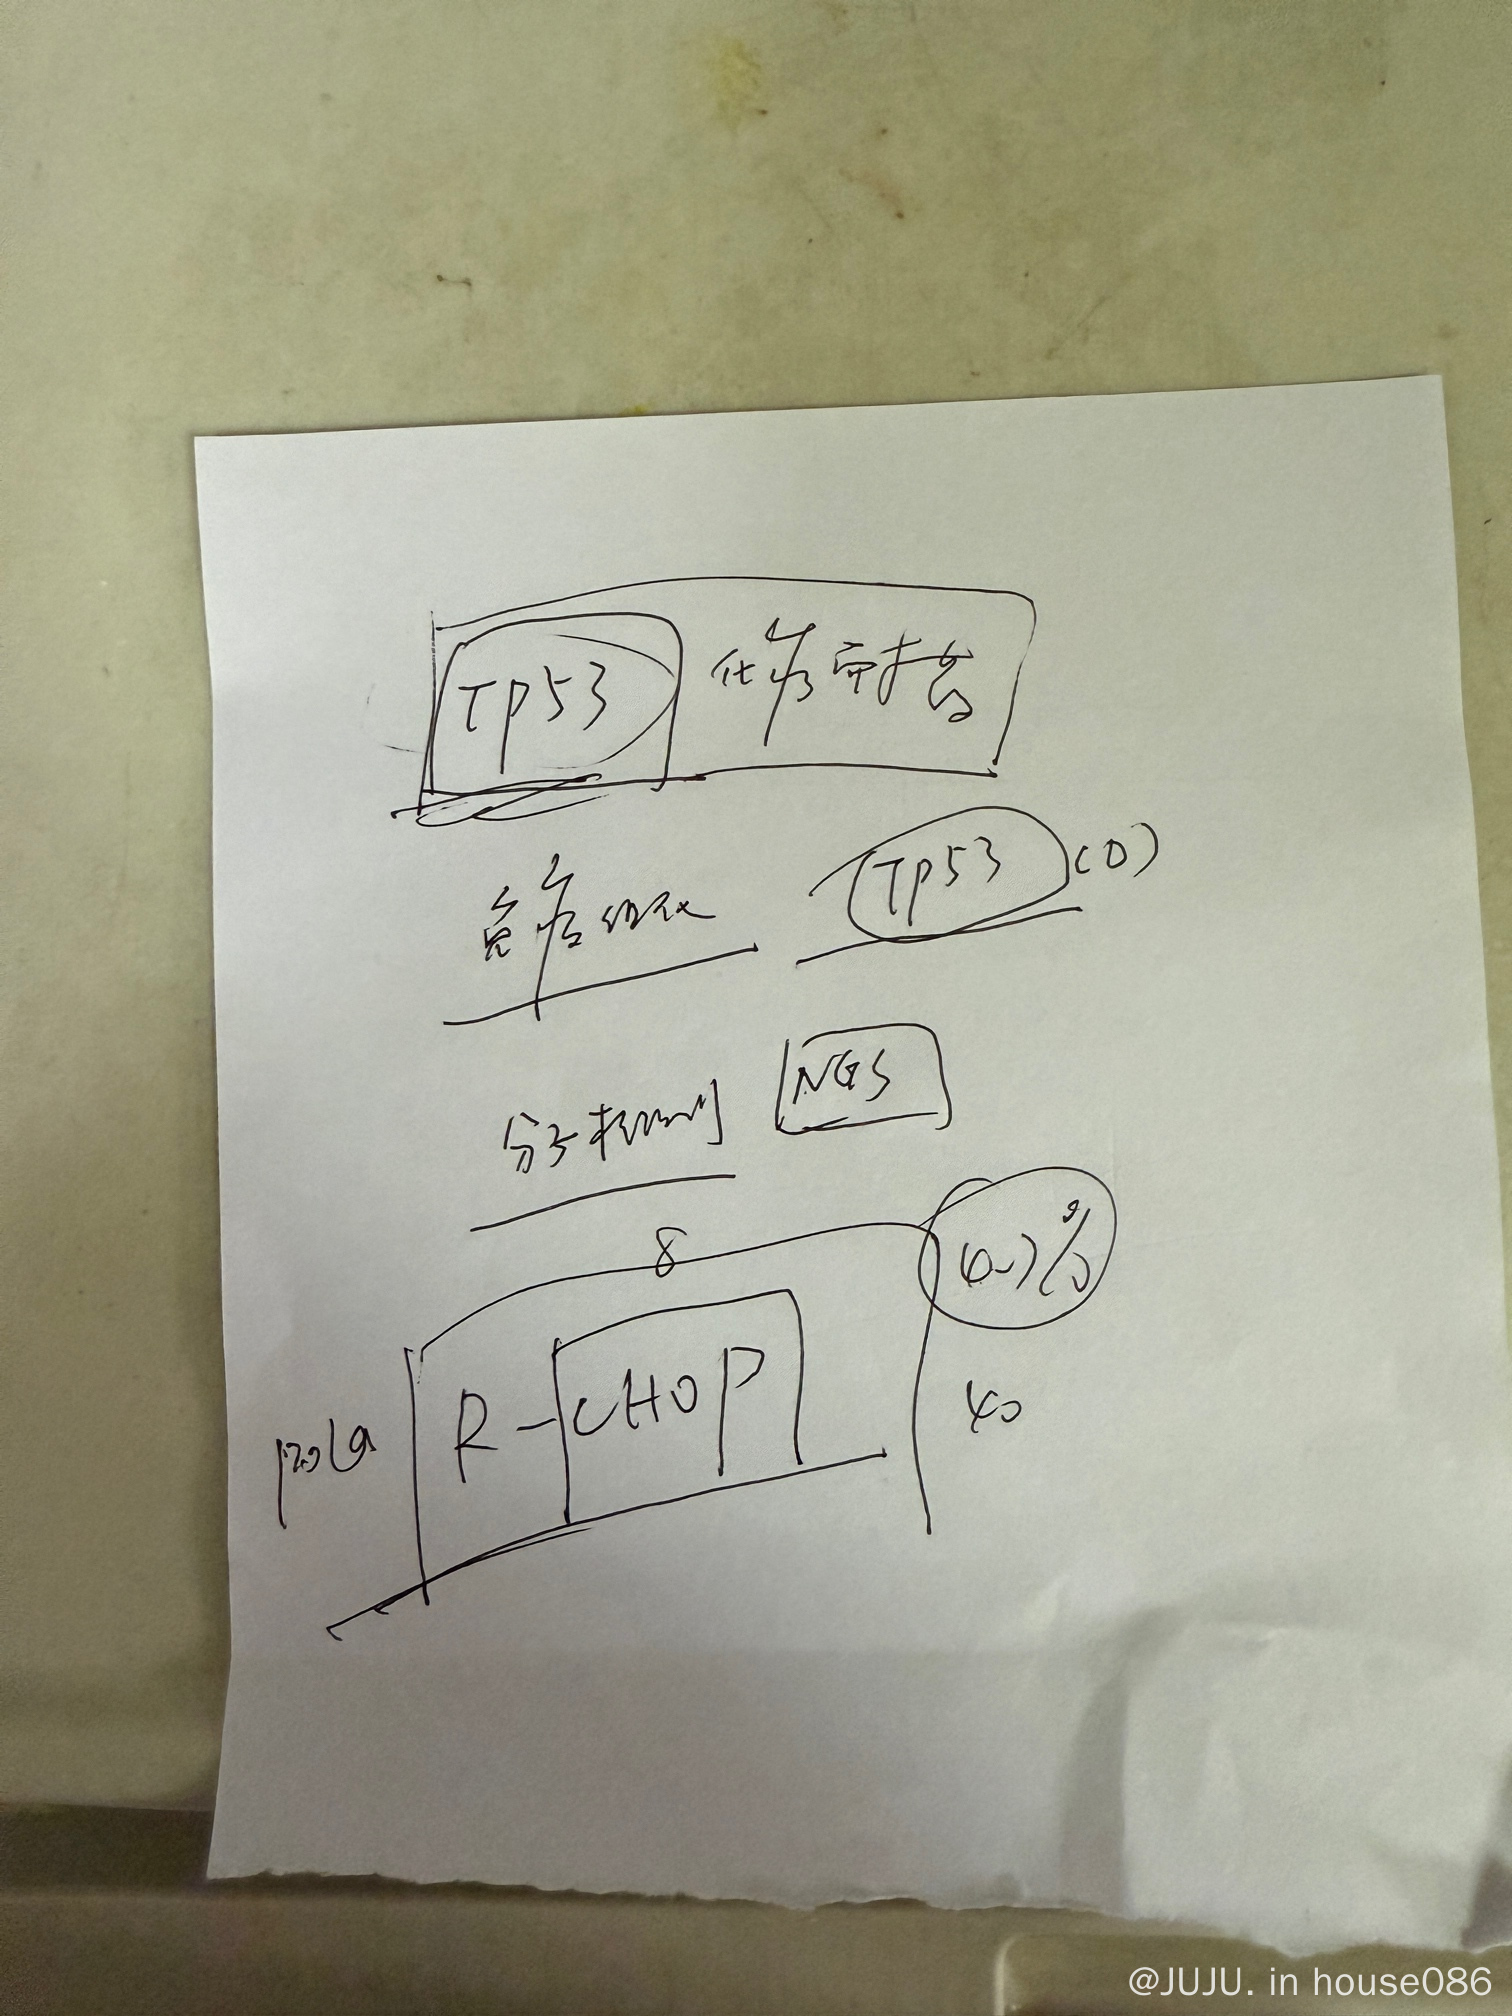 TP53 化疗耐抬
免疫组化 TP53 (0)
分子检测 NGS
8 %
pola R-CHOP 40
@JUJU. in house086